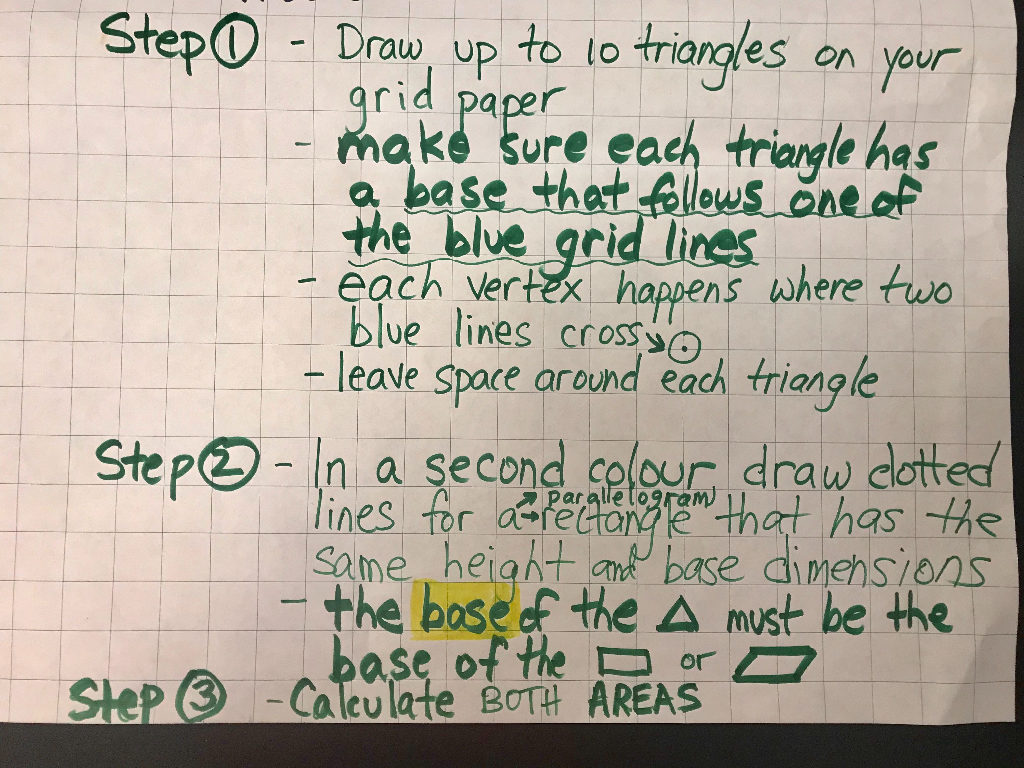 Step ① - Draw up to 10 triangles on your
grid paper
- make sure each triangle has
a base that follows one of
the blue grid lines
- each vertex happens where two
blue lines cross
- leave space around each triangle
Step ② - In a second colour, draw dotted
parallelogram
lines for a rectangle that has the
same height and base dimensions
- the base of the △ must be the
base of the ▭ or ▱
Step ③ - Calculate BOTH AREAS